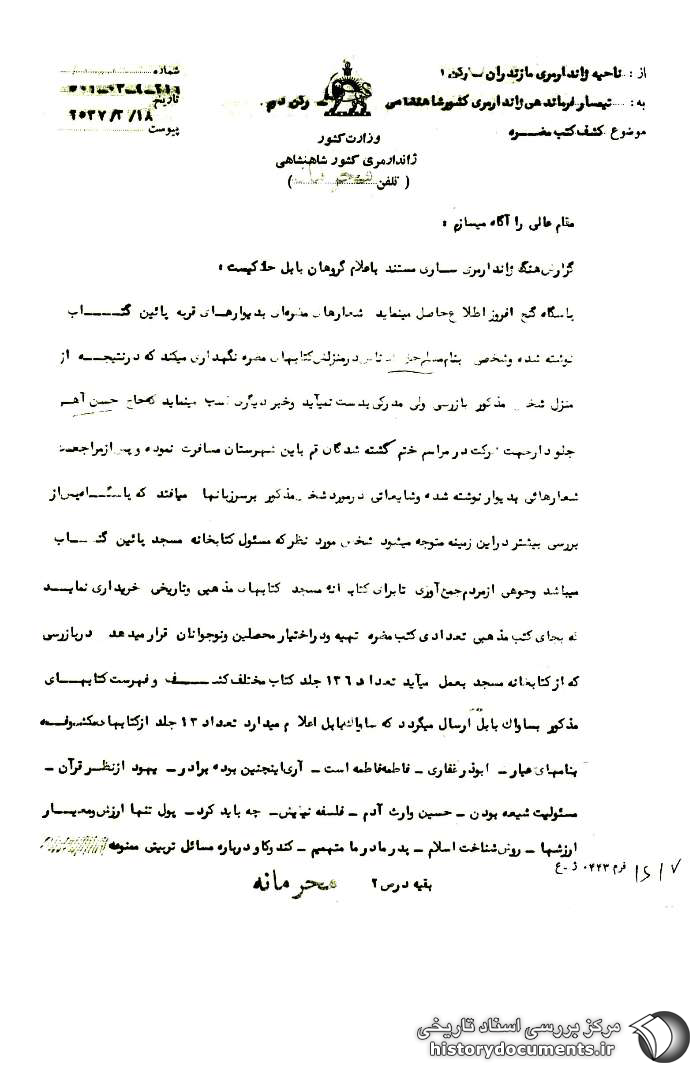 شماره
تاریخ
۲۵۳۷/۲/۱۸
پیوست
از : ناحیه ژاندارمری مازندران
به : تیمسار فرماندهی ژاندارمری کشور شاهنشاهی رکن دوم
موضوع کشف کتب مضره
وزارت کشور
ژاندارمری کشور شاهنشاهی
( تلفن )
مقام عالی را آگاه میسازم :
گزارش هنگ ژاندارمری ساری مستند باعلام گروهان بابل حاکیست :
پاسگاه گنج افروز اطلاع حاصل مینماید شعارهای مضره‌ای بدیوارهای قریه پائین گتاب
نوشته شده وشخصی بنام درمنزلش کتابهای مضره نگهداری میکند که درنتیجه از
منزل شخص مذکور بازرسی ولی مدرکی بدست نمیآید وخبر دیگری کسب مینماید که حاج حسن آهنـ
جلودار جهت شرکت در مراسم ختم کشته شدگان قم باین شهرستان مسافرت نموده و پس از مراجعت
شعارهائی بدیوار نوشته شده وشایعاتی درمورد شخص مذکور برسرزبانها میافتد که پاسگاه پس از
بررسی بیشتر دراین زمینه متوجه میشود شخص مورد نظر که مسئول کتابخانه مسجد پائین گتاب
میباشد وجوهی ازمردم جمع‌آوری تا برای کتابخانه مسجد کتابهای مذهبی وتاریخی خریداری نماید
که بجای کتب مذهبی تعدادی کتب مضره تهیه ودراختیار محصلین ونوجوانان قرار میدهد دربازرسی
که از کتابخانه مسجد بعمل میآید تعداد ۱۳۶ جلد کتاب مختلف کشف و فهرست کتابهای
مذکور بساواک بابل ارسال میگردد که ساواک بابل اعلام میدارد تعداد ۱۳ جلد ازکتابهای مکشوفه
بنامهای عیار ـ ابوذر غفاری ـ فاطمه فاطمه است ـ آری اینچنین بوده برادر ـ یهود ازنظر قرآن ـ
مسئولیت شیعه بودن ـ حسین وارث آدم ـ فلسفه نیایش ـ چه باید کرد ـ پول تنها ارزش ومعیار
ارزشها ـ روش شناخت اسلام ـ پدر مادر ما متهمیم ـ کندوکاو درباره مسائل تربیتی ممنوعه
بقیه درص ۲ محرمانه
فرم ۰۴۴۳ ژ ـ ع
مرکز بررسی اسناد تاریخی
historydocuments.ir